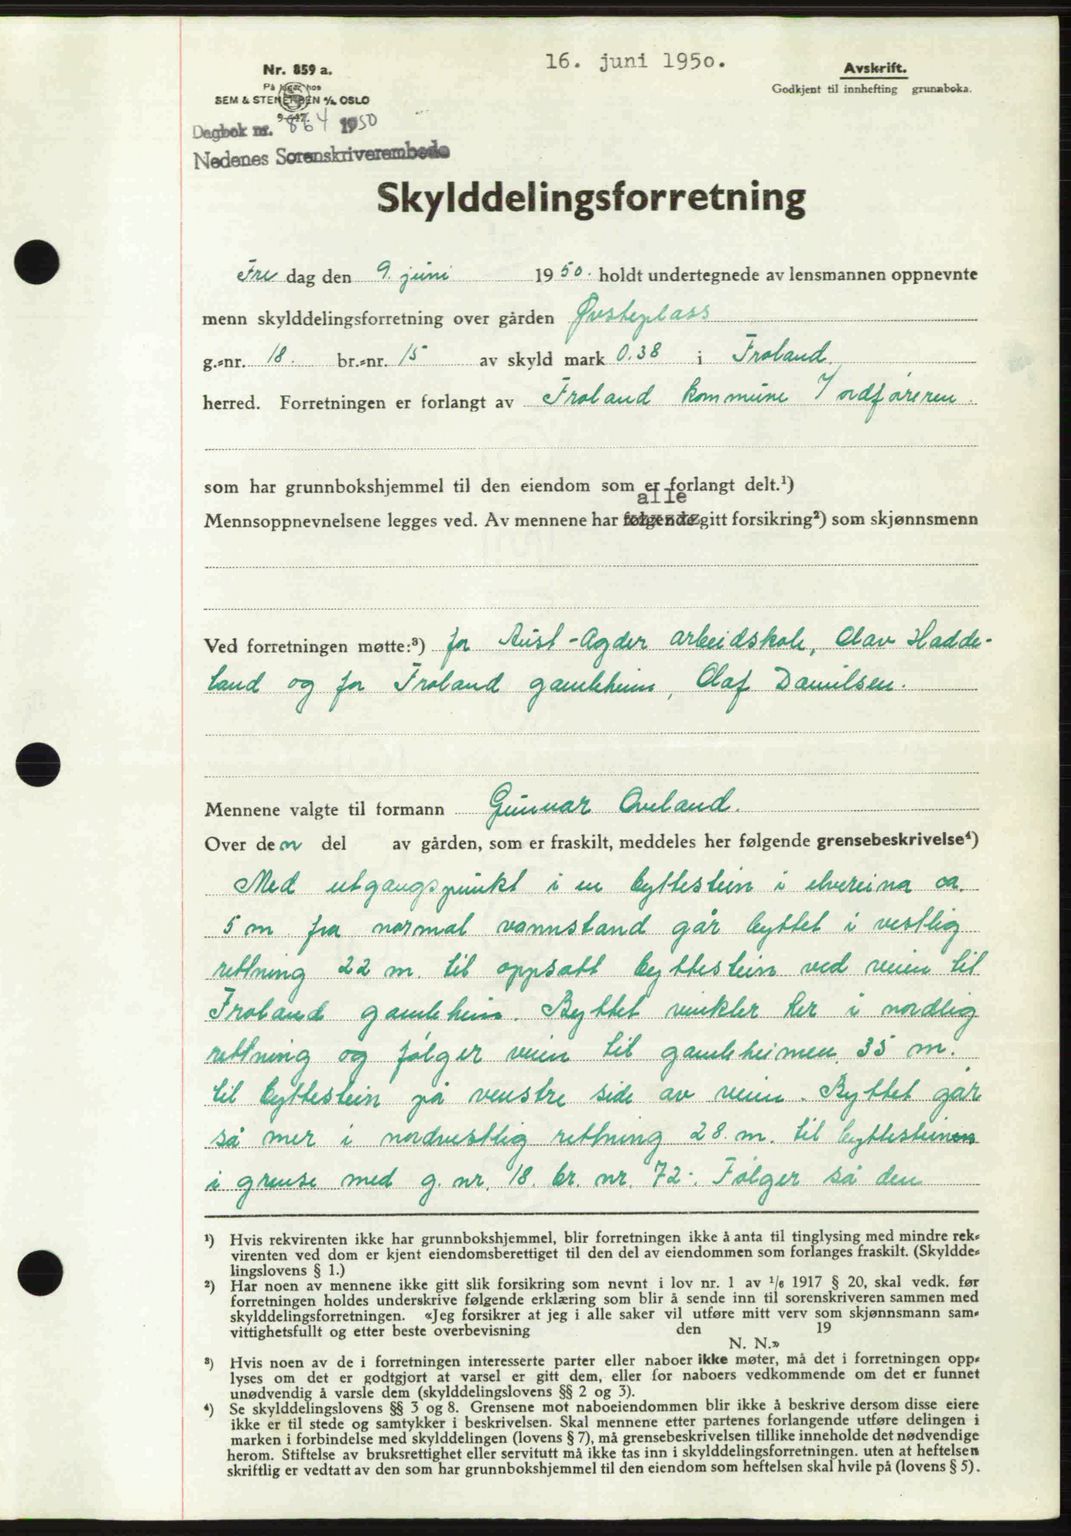 16. juni 1950.
Nr. 859 a.
På lager hos
SEM & STENERSEN A/S OSLO
9-647.
Avskrift.
Godkjent til innhefting grunnboka.
Dagbok nr. 864 1950
Nedenes Sorenskriverembede
Skylddelingsforretning
Fre dag den 9. juni 1950. holdt undertegnede av lensmannen oppnevnte
menn skylddelingsforretning over gården Øvsteplass
g.-nr. 18. br.-nr. 15 av skyld mark 0.38 i Froland.
herred. Forretningen er forlangt av Froland kommune v/ordføreren.
som har grunnbokshjemmel til den eiendom som er forlangt delt.¹)
alle
Mennsoppnevnelsene legges ved. Av mennene har følgende gitt forsikring²) som skjønnsmenn
Ved forretningen møtte:³) for Aust-Agder arbeidskole, Olav Hadde-
land og for Froland gamleheim, Olaf Danilsen.
Mennene valgte til formann Gunnar Oveland.
Over den del av gården, som er fraskilt, meddeles her følgende grensebeskrivelse⁴)
Med utgangspunkt i en byttestein i elvereina ca.
5 m fra normal vannstand går byttet i vestlig
rettning 22 m. til oppsatt byttestein ved veien til
Froland gamleheim. Byttet vinkler her i nordlig
rettning og følger veien til gamleheimen 35 m.
til byttestein på venstre side av veien. Byttet går
så mer i nordvestlig rettning 28. m. til byttesteinen
i grense med g. nr. 18. br. nr. 72. Følger så den
¹) Hvis rekvirenten ikke har grunnbokshjemmel, blir forretningen ikke å anta til tinglysing med mindre rek-
virenten ved dom er kjent eiendomsberettiget til den del av eiendommen som forlanges fraskilt. (Skyldde-
lingslovens § 1.)
²) Har noen av mennene ikke gitt slik forsikring som nevnt i lov nr. 1 av 1/6 1917 § 20, skal vedk. før
forretningen holdes underskrive følgende erklæring som blir å sende inn til sorenskriveren sammen med
skylddelingsforretningen. «Jeg forsikrer at jeg i alle saker vil utføre mitt verv som skjønnsmann sam-
vittighetsfullt og etter beste overbevisning den 19
N. N.»
³) Hvis noen av de i forretningen interesserte parter eller naboer ikke møter, må det i forretningen opp-
lyses om det er godtgjort at varsel er gitt dem, eller for naboers vedkommende om det er funnet
unødvendig å varsle dem (skylddelingslovens §§ 2 og 3).
⁴) Se skylddelingslovens §§ 3 og 8. Grensene mot naboeiendommen blir ikke å beskrive dersom disse eiere
ikke er til stede og samtykker i beskrivelsen. Skal mennene etter partenes forlangende utføre delingen i
marken i forbindelse med skylddelingen (lovens § 7), må grensebeskrivelsen tillike inneholde det nødvendige
herom. Stiftelse av bruksrettighet eller servitutt må ikke tas inn i skylddelingsforretningen. uten at heftelsen
skriftlig er vedtatt av den som har grunnbokshjemmel til den eiendom som heftelsen skal hvile på (lovens § 5).